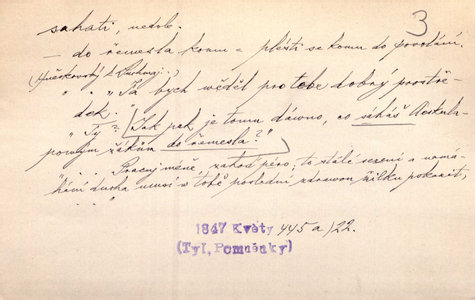 3
sahati, nedok.
— do řemesla komu = plésti se komu do povolání,
" " "Já bych věděl pro tebe dobrý prostře-
dek."
"Ty? [Jak pak je tomu dávno, co saháš Aeskula-
povým žákům do řemesla?"]
... Pracuj méně, zahoď péro, to stálé sezení a namá-
hání ducha musí v tobě poslední zdravou žilku pokazit,
..."
1847 Květy 445 a/22.
(Tyl, Pomněnky)